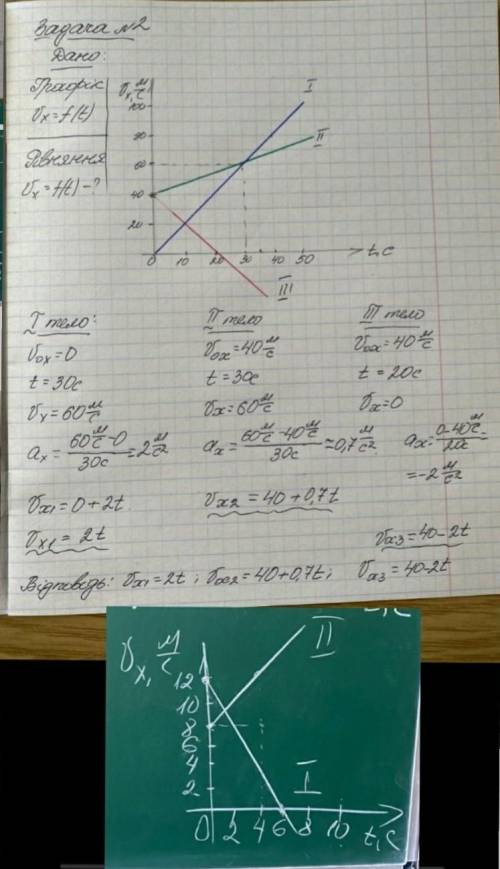 Задача №2
Дано:
Графік
Vx=f(t)
Рівняння
Vx=f(t)-?
Vx, м/с
100
80
60
40
20
0 10 20 30 40 50 t, c
I
II
III
I тело:
V0x=0
t=30c
Vx=60 м/с
ax= (60 м/с -0)/30c =2 м/с²
Vx1=0+2t
Vx1=2t
II тело
V0x=40 м/с
t=30c
Vx=60 м/с
ax= (60 м/с -40 м/с)/30c ≈0,7 м/с²
Vx2=40+0,7t
III тело
V0x=40 м/с
t=20c
Vx=0
ax= (0-40 м/с)/20c =
=-2 м/с²
Vx3=40-2t
Відповедь: Vx1=2t; Vx2=40+0,7t; Vx3=40-2t
Vx, м/с
12
10
8
6
4
2
0 2 4 6 8 10 t, c
II
I